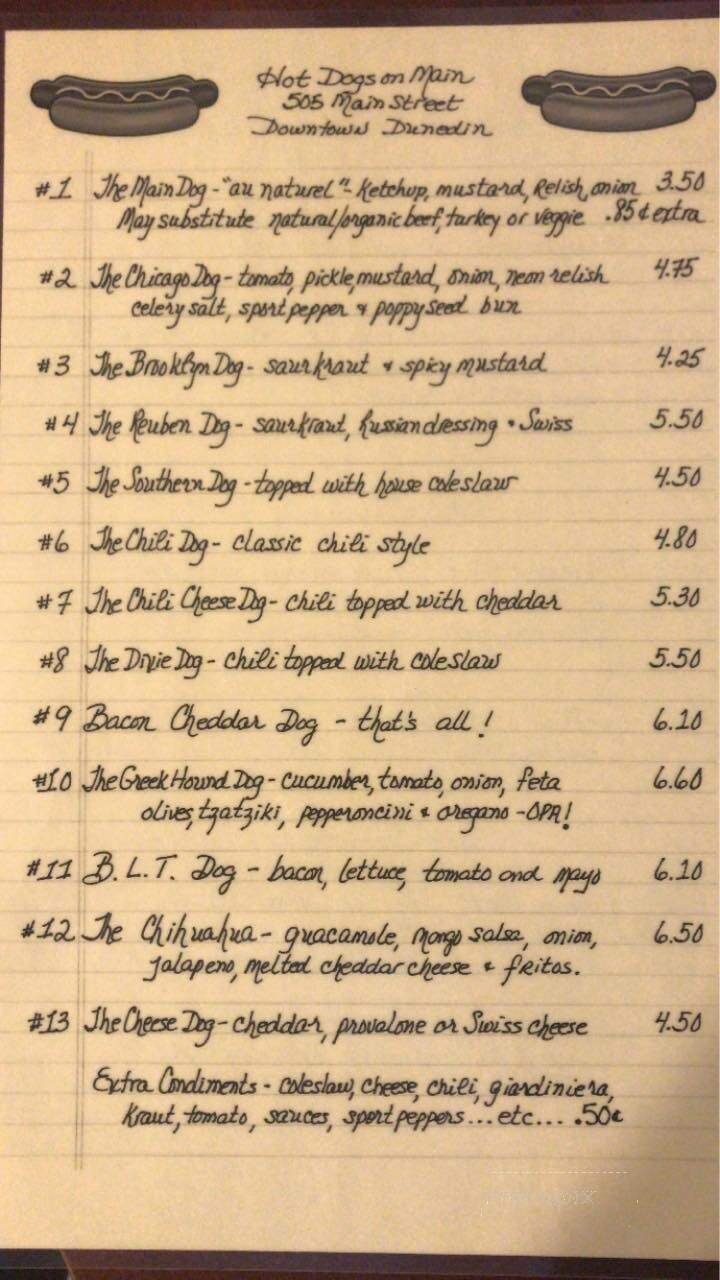 Hot Dogs on Main
505 Main Street
Downtown Dunedin
#1 The Main Dog - "au naturel" - Ketchup, mustard, Relish, onion 3.50
May substitute natural/organic beef, turkey or veggie .85¢ extra
#2 The Chicago Dog - tomato, pickle, mustard, onion, neon relish 4.75
celery salt, sport pepper & poppyseed bun
#3 The Brooklyn Dog - saurkraut & spicy mustard 4.25
#4 The Reuben Dog - saurkraut, Russian dressing & Swiss 5.50
#5 The Southern Dog - topped with house coleslaw 4.50
#6 The Chili Dog - classic chili style 4.80
#7 The Chili Cheese Dog - chili topped with cheddar 5.30
#8 The Dixie Dog - chili topped with coleslaw 5.50
#9 Bacon Cheddar Dog - that's all! 6.10
#10 The Greek Hound Dog - cucumber, tomato, onion, feta 6.60
olives, tzatziki, pepperoncini & oregano - OPA!
#11 B.L.T. Dog - bacon, lettuce, tomato and mayo 6.10
#12 The Chihuahua - guacamole, mango salsa, onion, 6.50
jalapeno, melted cheddar cheese & fritos.
#13 The Cheese Dog - cheddar, provalone or Swiss cheese 4.50
Extra Condiments - coleslaw, cheese, chili, giardiniera,
Kraut, tomato, sauces, sport peppers...etc... .50¢